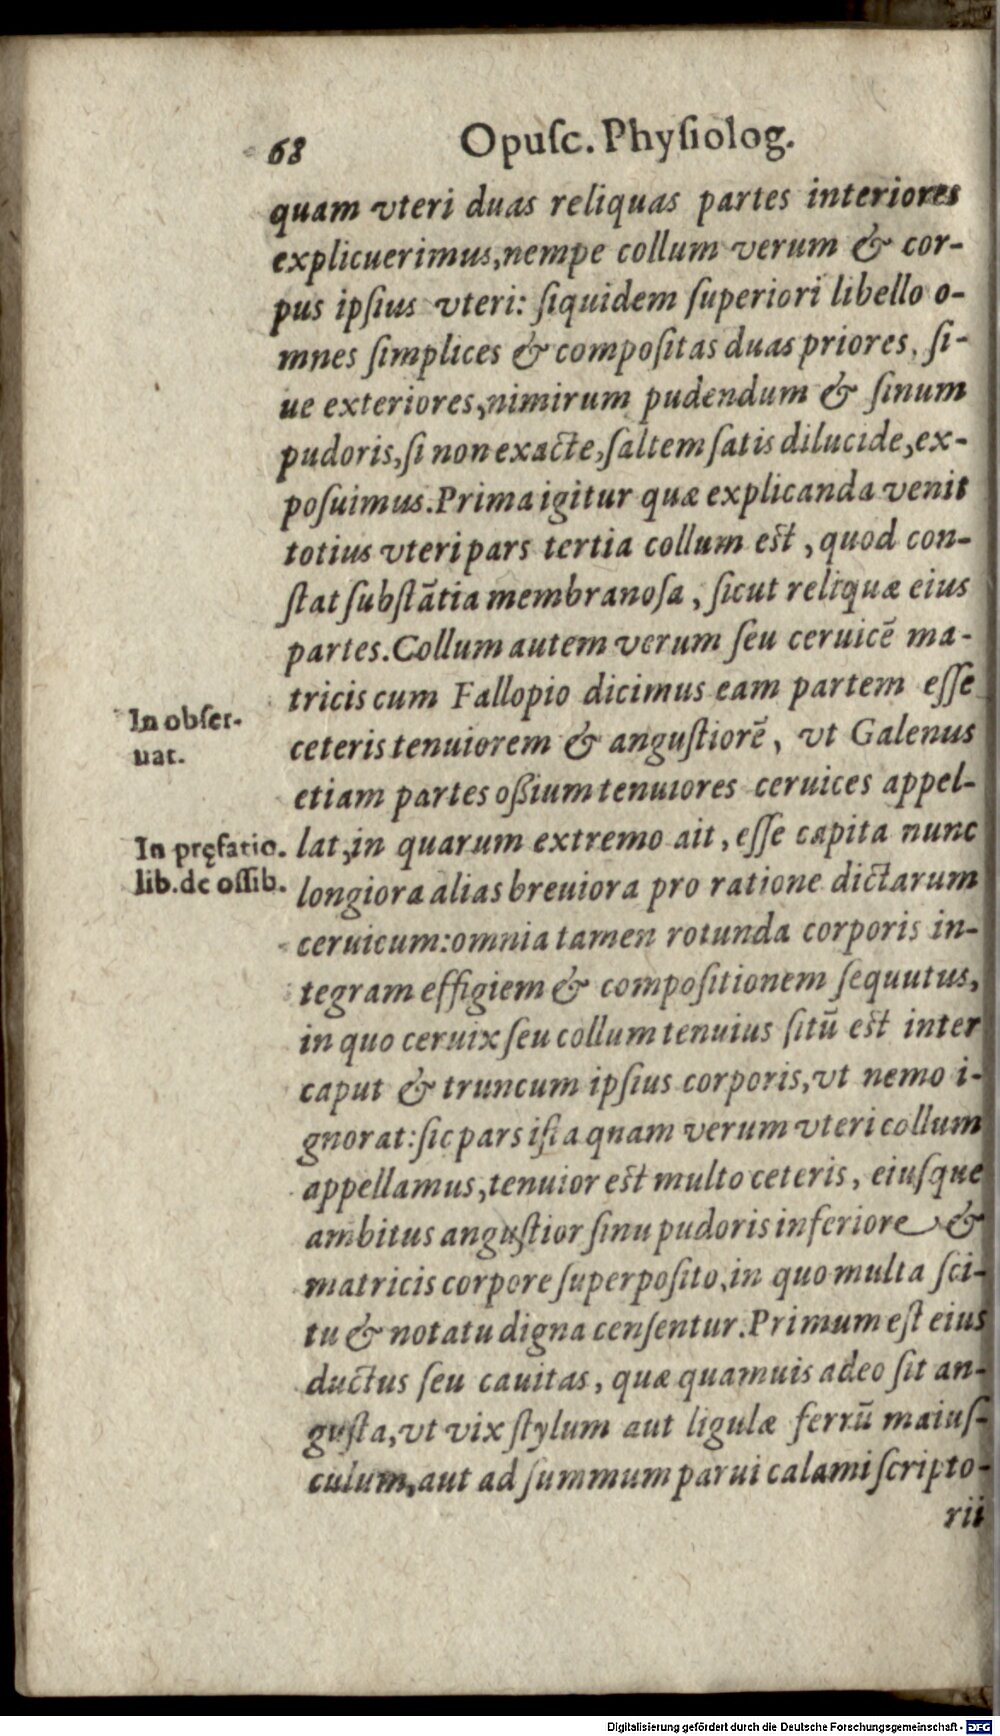 68 Opuſc. Phyſiolog.
quam vteri duas reliquas partes interiores
explicuerimus, nempe collum verum & cor-
pus ipſius vteri: ſiquidem ſuperiori libello o-
mnes ſimplices & compoſitas duas priores, ſi-
ue exteriores, nimirum pudendum & ſinum
pudoris, ſi non exacte, ſaltem ſatis dilucide, ex-
poſuimus. Prima igitur quæ explicanda venit
totius vteri pars tertia collum est, quod con-
ſtat ſubſtātia membranoſa, ſicut reliquæ eius
partes. Collum autem verum ſeu ceruicē ma-
tricis cum Fallopio dicimus eam partem eſſe
In obſer-
uat.
ceteris tenuiorem & anguſtiorē, vt Galenus
etiam partes oßium tenuiores ceruices appel-
In pręfatio.
lib. de oſſib.
lat, in quarum extremo ait, eſſe capita nunc
longiora alias breuiora pro ratione dictarum
ceruicum: omnia tamen rotunda corporis in-
tegram effigiem & compoſitionem ſequutus,
in quo ceruix ſeu collum tenuius ſitū est inter
caput & truncum ipſius corporis, vt nemo i-
gnorat: ſic pars iſta qnam verum vteri collum
appellamus, tenuior est multo ceteris, eiuſque
ambitus anguſtior ſinu pudoris inferiore &
matricis corpore ſuperpoſito, in quo multa ſci-
tu & notatu digna cenſentur. Primum eſt eius
ductus ſeu cauitas, quæ quamuis adeo ſit an-
guſta, vt vix ſtylum aut ligulæ ferrū maiuſ-
culum, aut ad ſummum parui calami ſcripto-
rii
Digitalisierung gefördert durch die Deutsche Forschungsgemeinschaft - DFG